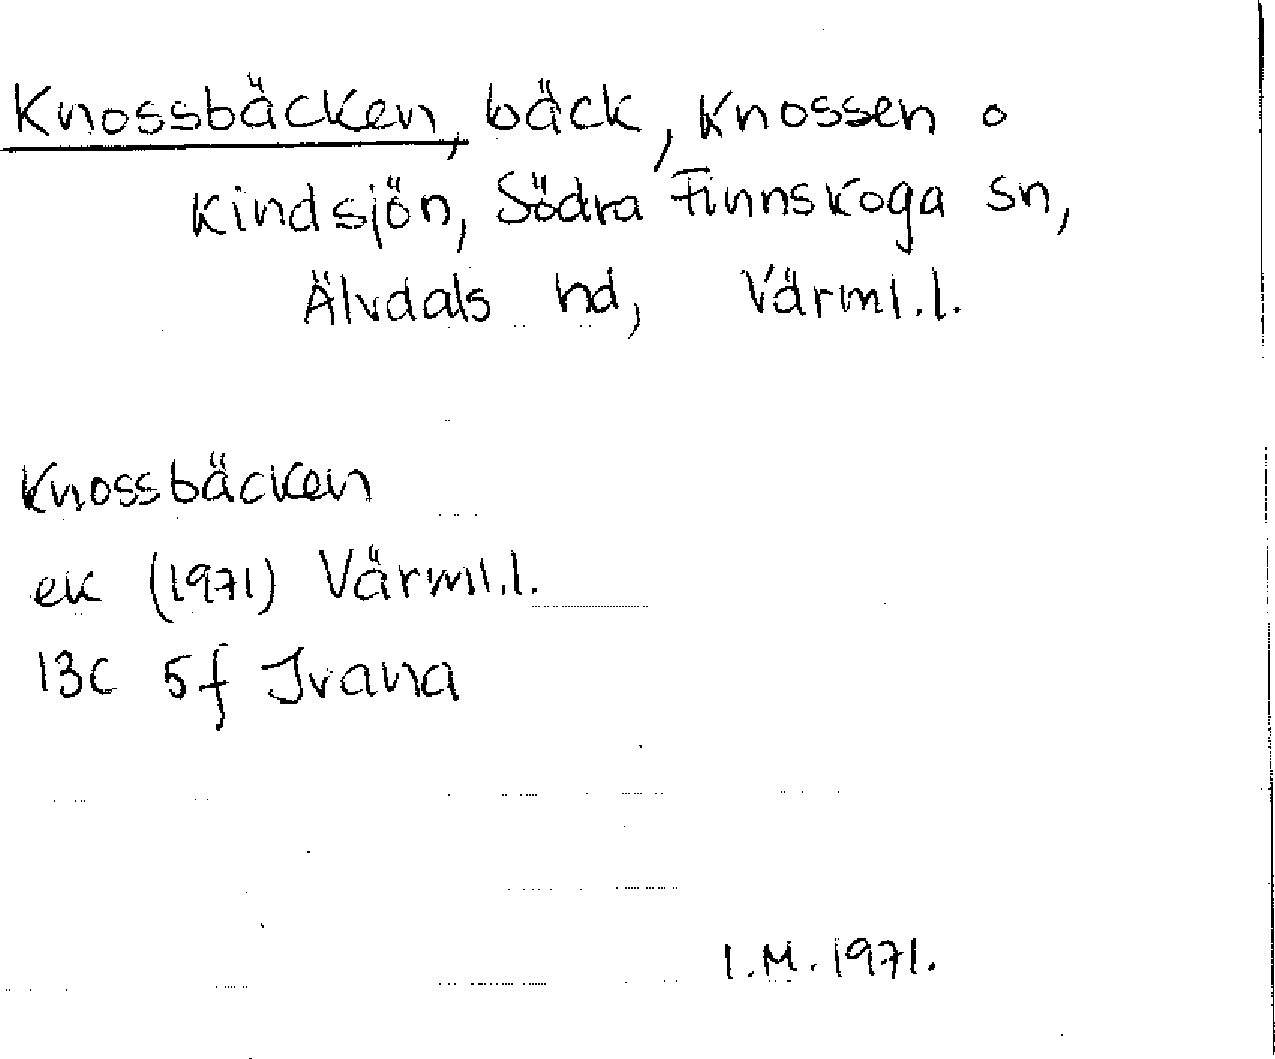 Knossbäcken, bäck, Knossen o
Kindsjön, Södra Finnskoga sn,
Älvdals hd, Värml.l.
Knossbäcken
ek (1971) Värml.l.
13C 5f Ivana
I.M. 1971.